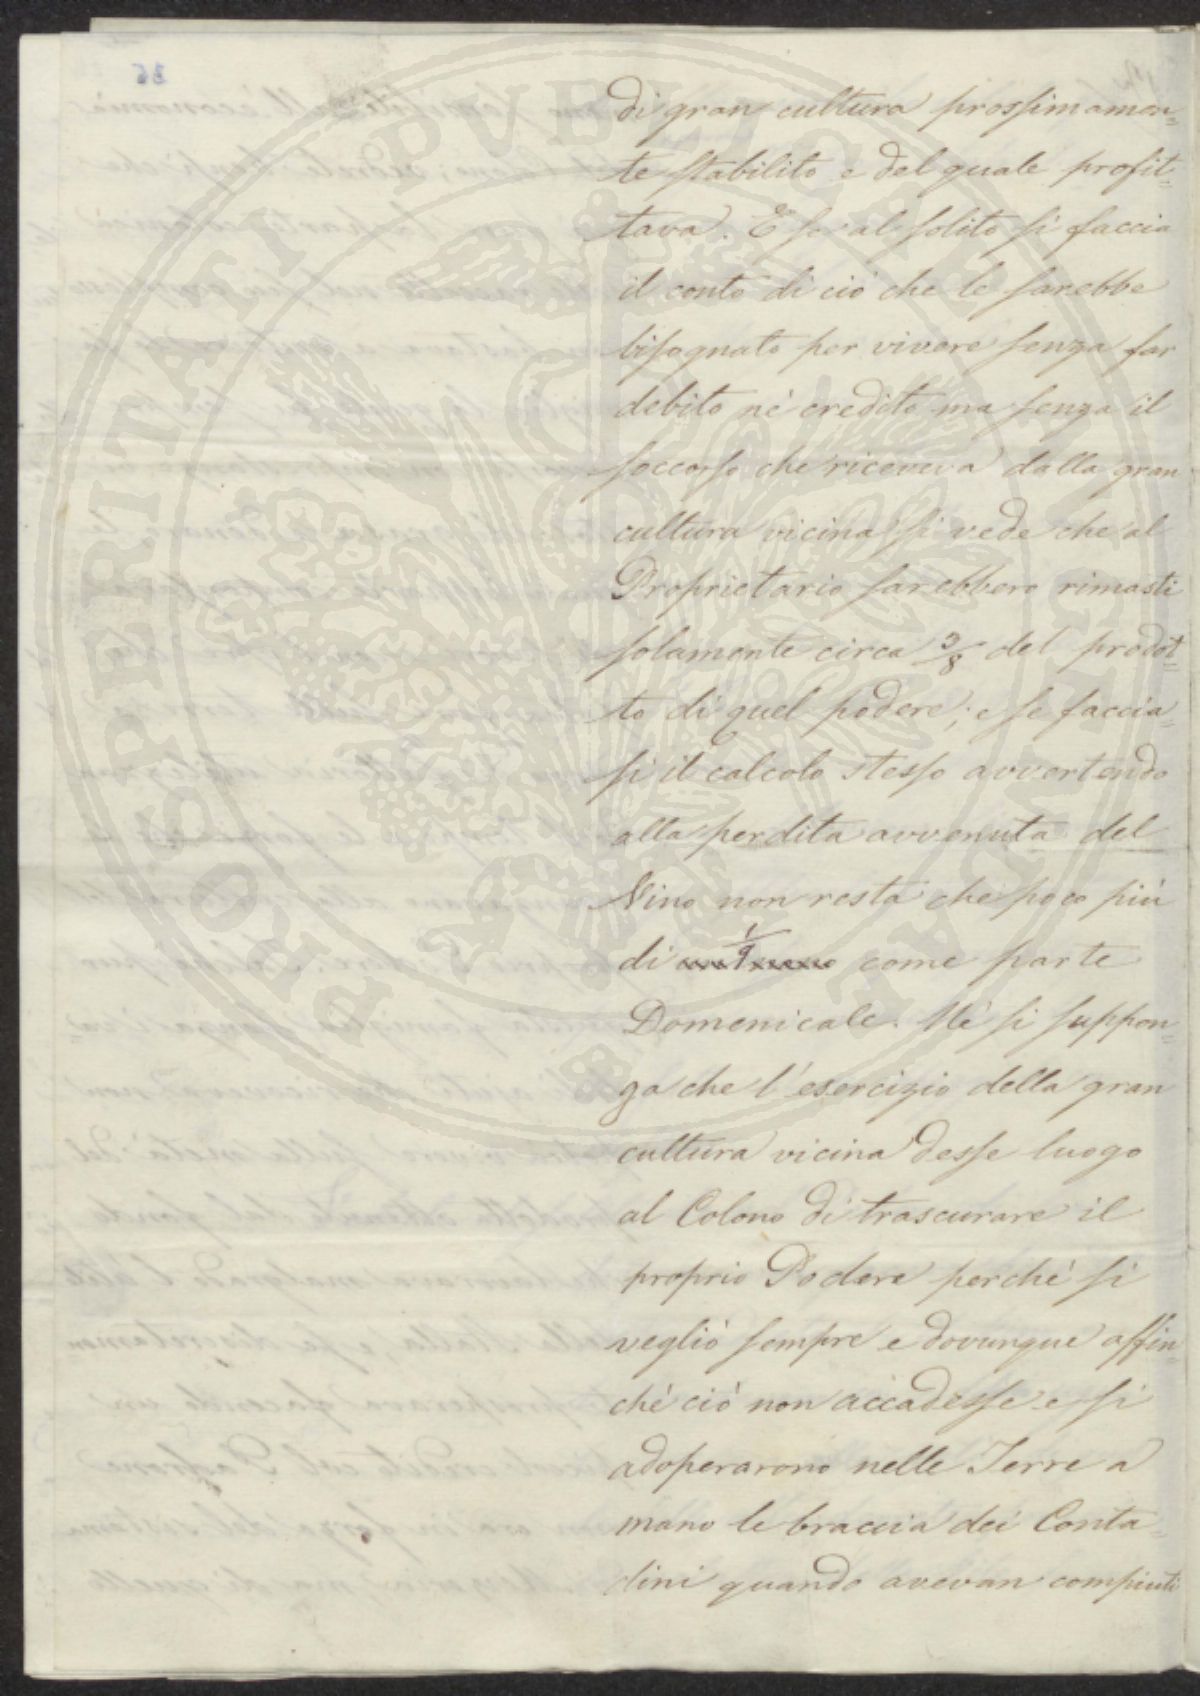 di gran cultura prossimamen=
te stabilito e del quale profit=
tava. E se al solito si faccia
il conto di ciò che le sarebbe
bisognato per vivere senza far
debito nè credito ma senza il
soccorso che riceveva dalla gran
cultura vicina si vede che al
Proprietario sarebbero rimasti
solamente circa 3/8 del prodot=
to di quel podere; e se faccia=
si il calcolo stesso avvertendo
alla perdita avvenuta del
Vino non resta che poco più
di 1/9 come parte
Domenicale. Nè si suppon=
ga che l'esercizio della gran
cultura vicina desse luogo
al Colono di trascurare il
proprio Podere perchè si
vegliò sempre e dovunque affin=
chè ciò non accadesse e si
adoperarono nelle Terre a
mano le braccia dei Conta=
dini quando avevan compiuti
PROSPERITATI PVBLICAE AVGENDAE